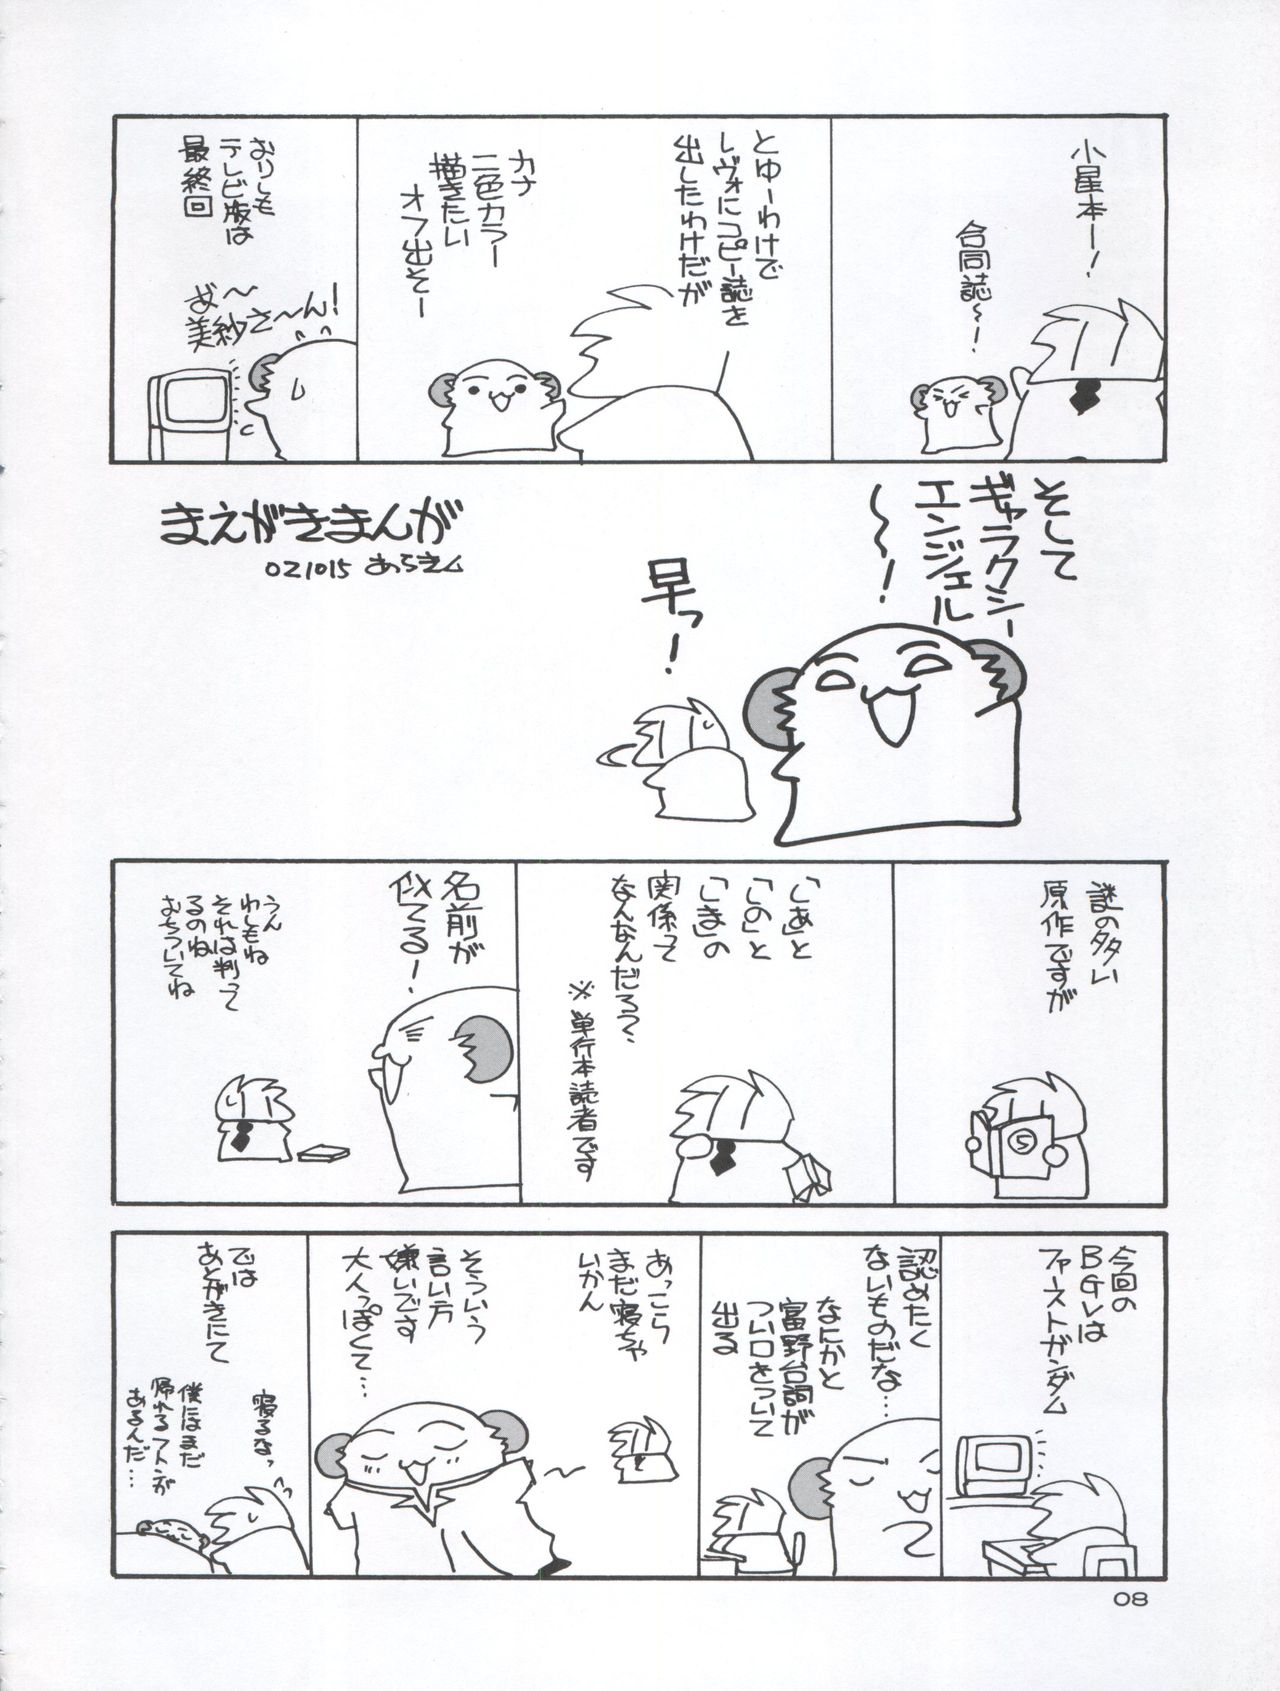 小星本ー！
合同誌〜！
とゆーわけで
レヴォにコピー誌を
出したわけだが
カナ
二色カラー
描きたい
オフ出そー
おりしも
テレビ版は
最終回
あ〜
美紗さ〜ん！
そして
ギャラクシー
エンジェル
〜！
早っ！
まえがきまんが
021015 あらえム
謎の多い
原作ですが
「あ」と
「の」と
「ま」の
関係って
なんなんだろう？
※単行本読者です
名前が
似てる！
うん
わしもね
それは判って
るのね
おちついてね
今回の
BGVは
ファーストガンダム
認めたく
ないものだな…
なにかと
富野台詞が
つい口をついて
出る
あっこら
まだ寝ちゃ
いかん
そういう
言い方
嫌いです
大人っぽくて…
では
あとがきにて
寝るなっ
僕にはまだ
帰れるフトンが
あるんだ…
08